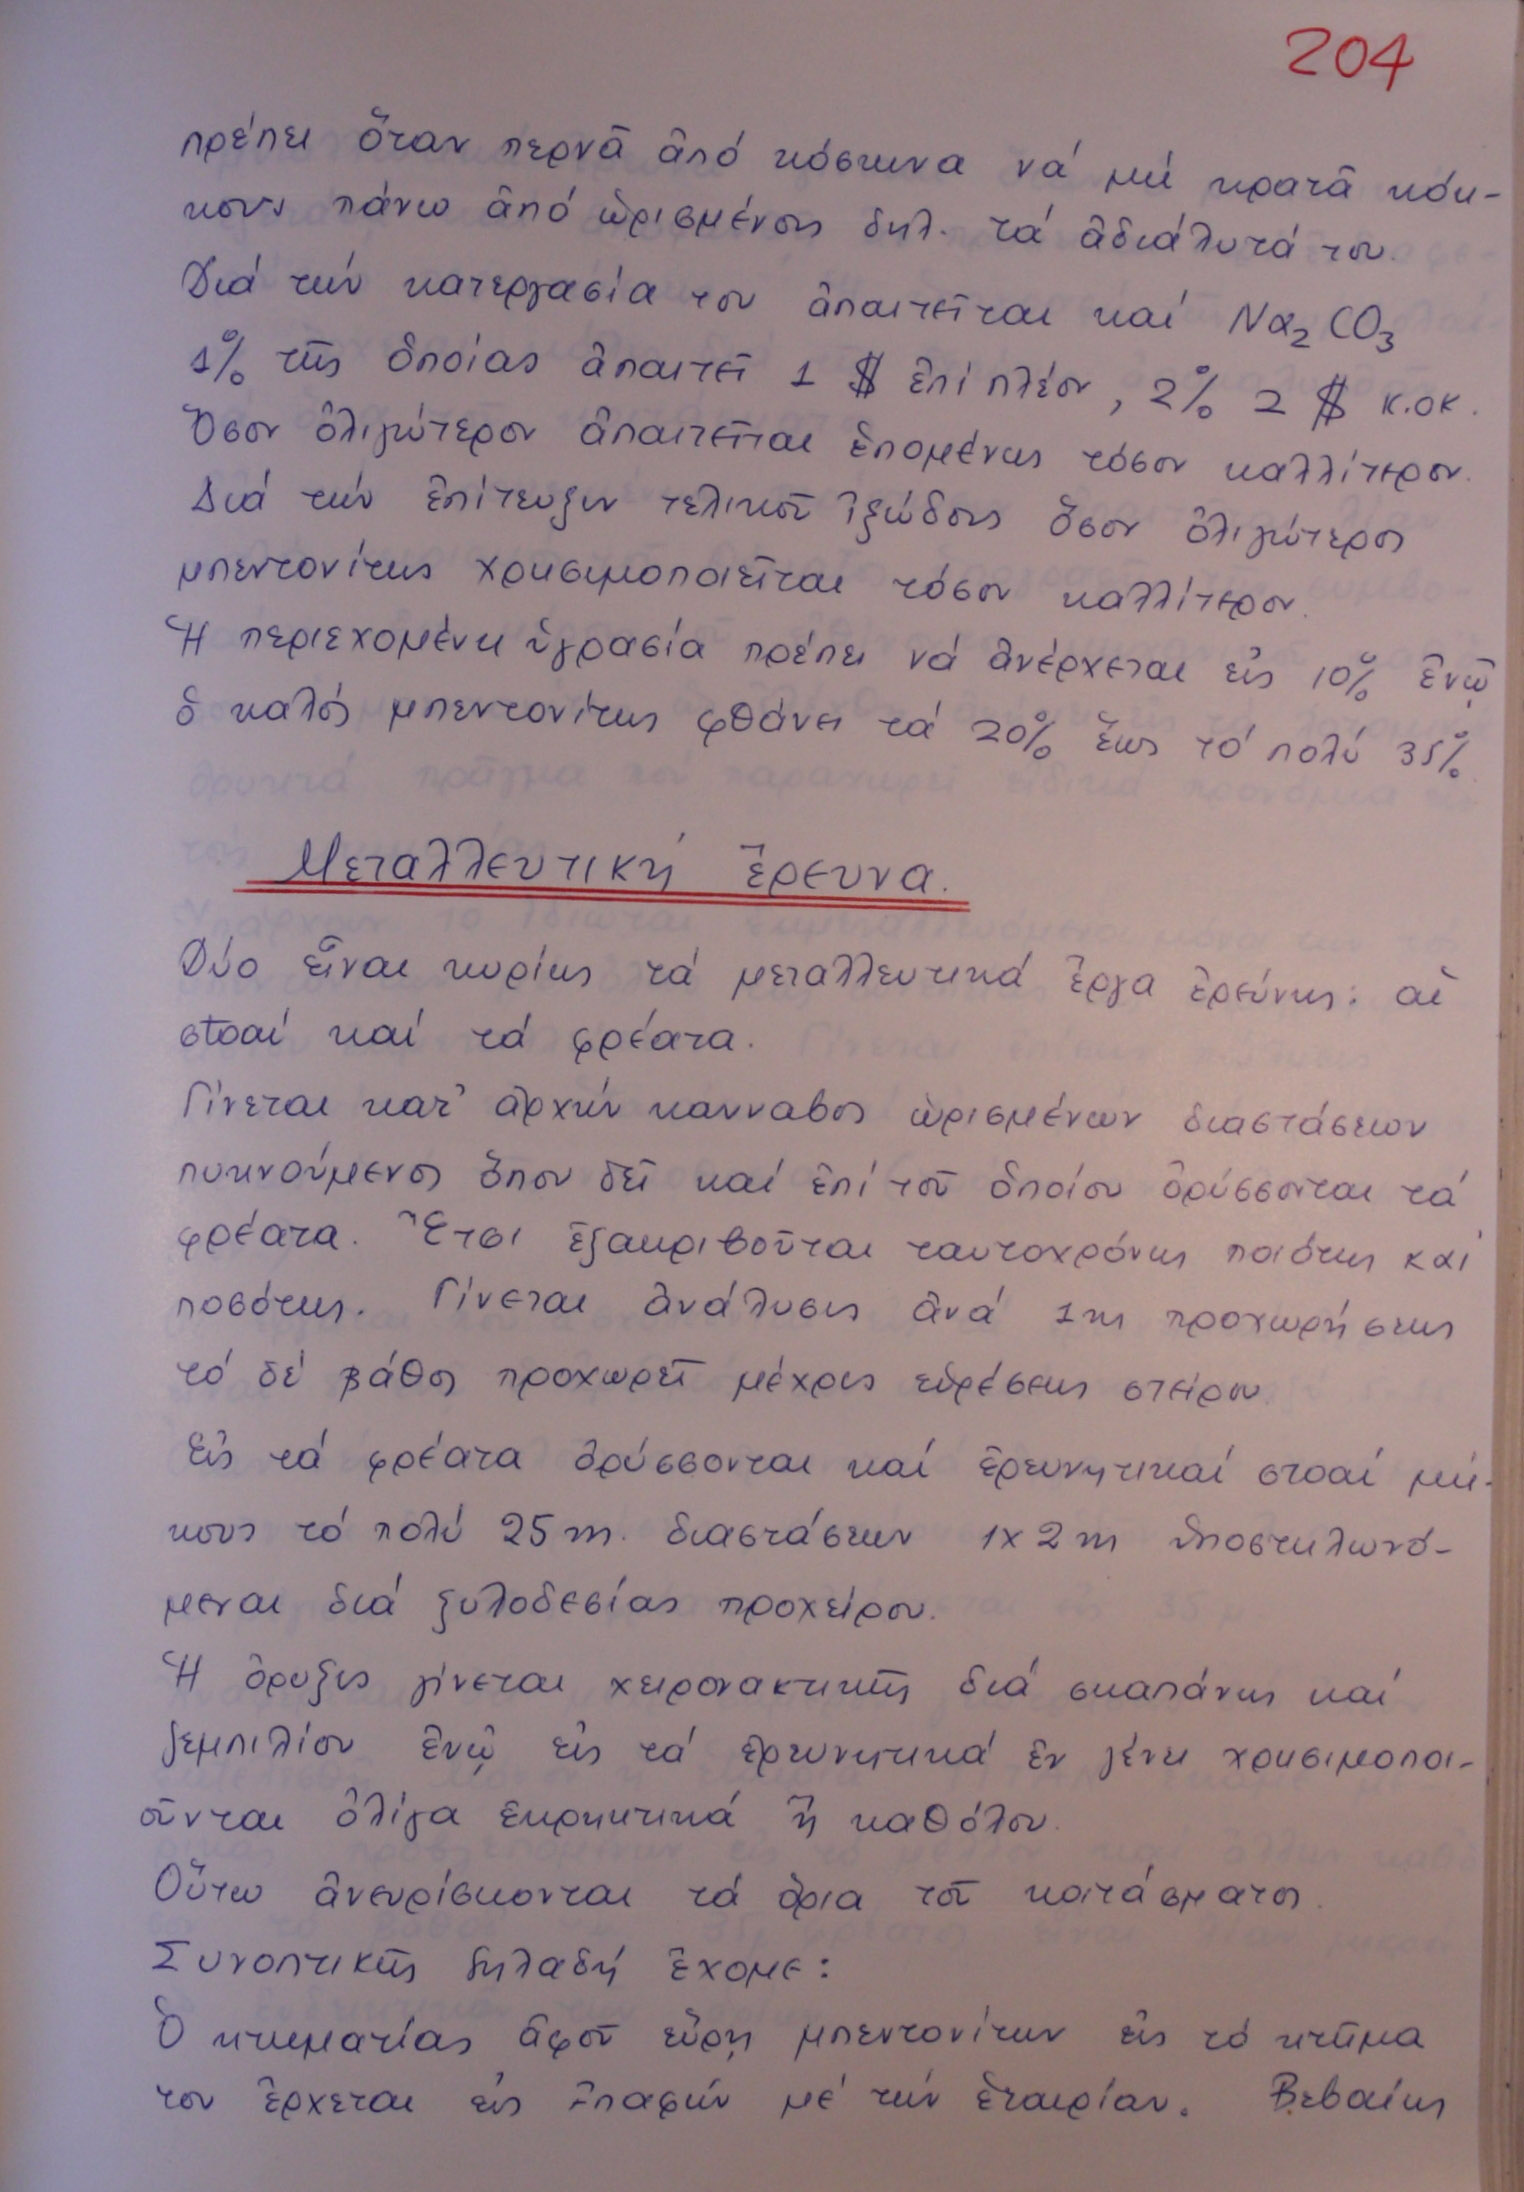 204
πρέπει ὅταν περνᾶ ἀπό κόσκινα νά μή κρατᾶ κόκ-
κους πάνω ἀπό ὡρισμένους δηλ. τά ἀδιάλυτά του.
Διά τήν κατεργασία του ἀπαιτεῖται καί Na₂CO₃
1% τῆς ὁποίας ἀπαιτεῖ 1 $ ἐπί πλέον, 2% 2 $ κ.οκ.
Ὅσον ὀλιγώτερον ἀπαιτεῖται ἑπομένως τόσον καλλίτερον.
Διά τήν ἐπίτευξιν τελικοῦ ἰξώδους ὅσον ὀλιγώτερος
μπεντονίτης χρησιμοποιεῖται τόσον καλλίτερον.
Ἡ περιεχομένη ὑγρασία πρέπει νά ἀνέρχεται εἰς 10% ἐνῷ
ὁ καλός μπεντονίτης φθάνει τά 20% ἕως τό πολύ 35%.
Μεταλλευτική ἔρευνα.
Δύο εἶναι κυρίως τά μεταλλευτικά ἔργα ἐρεύνης: αἱ
στοαί καί τά φρέατα.
Γίνεται κατ' ἀρχήν κανναβος ὡρισμένων διαστάσεων
πυκνούμενος ὅπου δεῖ καί ἐπί τοῦ ὁποίου ὀρύσσονται τά
φρέατα. Ἔτσι ἐξακριβοῦται ταυτοχρόνως ποιότης καί
ποσότης. Γίνεται ἀνάλυσις ἀνά 1m προχωρήσεως
τό δέ βάθος προχωρεῖ μέχρις εὑρέσεως στείρου.
Εἰς τά φρέατα ὀρύσσονται καί ἐρευνητικαί στοαί μή-
κους τό πολύ 25m. διαστάσεων 1x2m ὑποστηλωνό-
μεναι διά ξυλοδεσίας προχείρου.
Ἡ ὄρυξις γίνεται χειρονακτικῆς διά σκαπάνης καί
ζεμπιλίου ἐνῷ εἰς τά ἐρευνητικά ἐν γένει χρησιμοποι-
οῦνται ὀλίγα ἐκρηκτικά ἤ καθόλου.
Οὕτω ἀνευρίσκονται τά ὅρια τοῦ κοιτάσματος.
Συνοπτικῆς δηλαδή ἔχομε:
Ὁ κτηματίας ἀφοῦ εὕρῃ μπεντονίτην εἰς τό κτῆμα
του ἔρχεται εἰς ἐπαφήν μέ τήν ἑταιρίαν. Βεβαίως